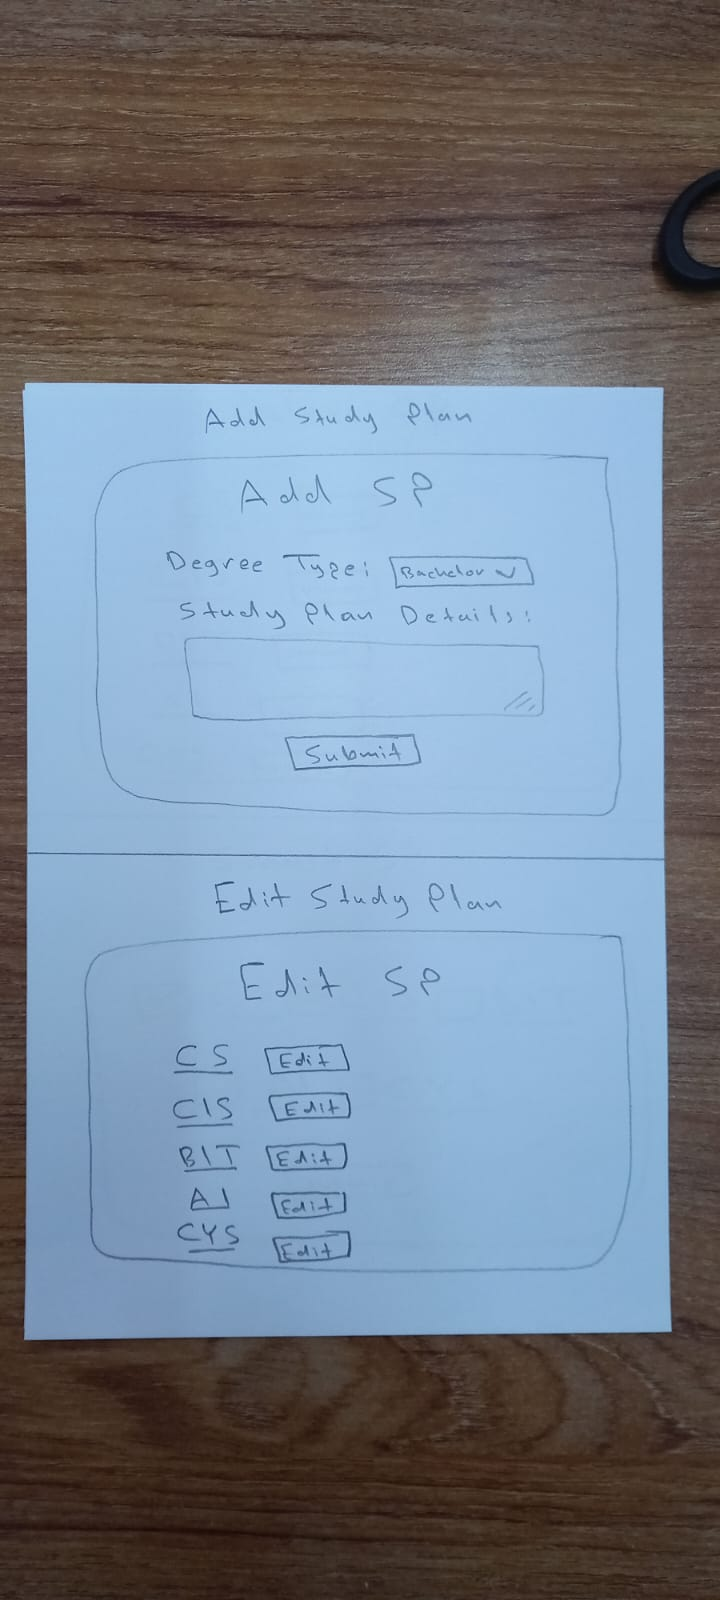 Add Study Plan
Add SP
Degree Type: Bachelor
Study Plan Details:
Submit
Edit Study Plan
Edit SP
CS Edit
CIS Edit
BIT Edit
AI Edit
CYS Edit